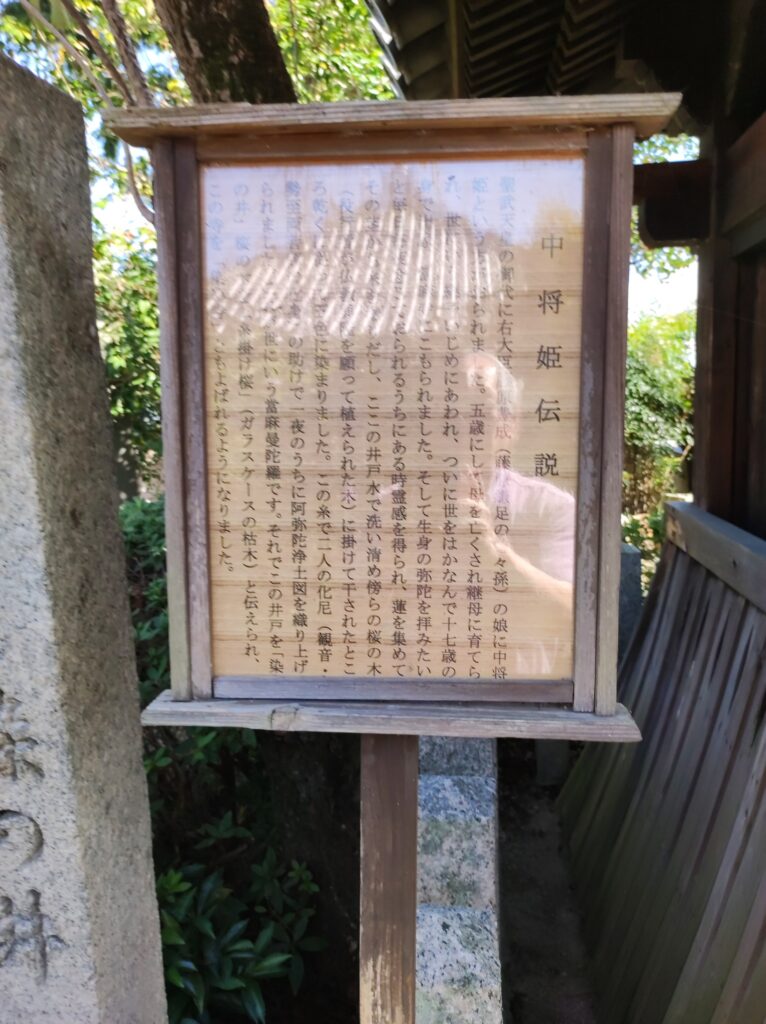 中将姫伝説
聖武天皇の御代に右大臣藤原豊成(藤原鎌足の々孫)の娘に中将
姫という おられました。五歳にして母を亡くされ継母に育てら
れ、世 いじめにあわれ、ついに世をはかなんで十七歳の
身で こもられました。そして生身の弥陀を拝みたい
と せられるうちにある時霊感を得られ、蓮を集めて
その茎から糸 だし、ここの井戸水で洗い清め傍らの桜の木
(役行者が仏教 を願って植えられた木)に掛けて干されたとこ
ろ乾く 五色に染まりました。この糸で二人の化尼(観音・
勢至 の助けで一夜のうちに阿弥陀浄土図を織り上げ
られまし 世にいう當麻曼陀羅です。それでこの井戸を「染
の井」桜の 「糸掛け桜」(ガラスケースの枯木)と伝えられ、
この寺を「染 ともよばれるようになりました。
染の井